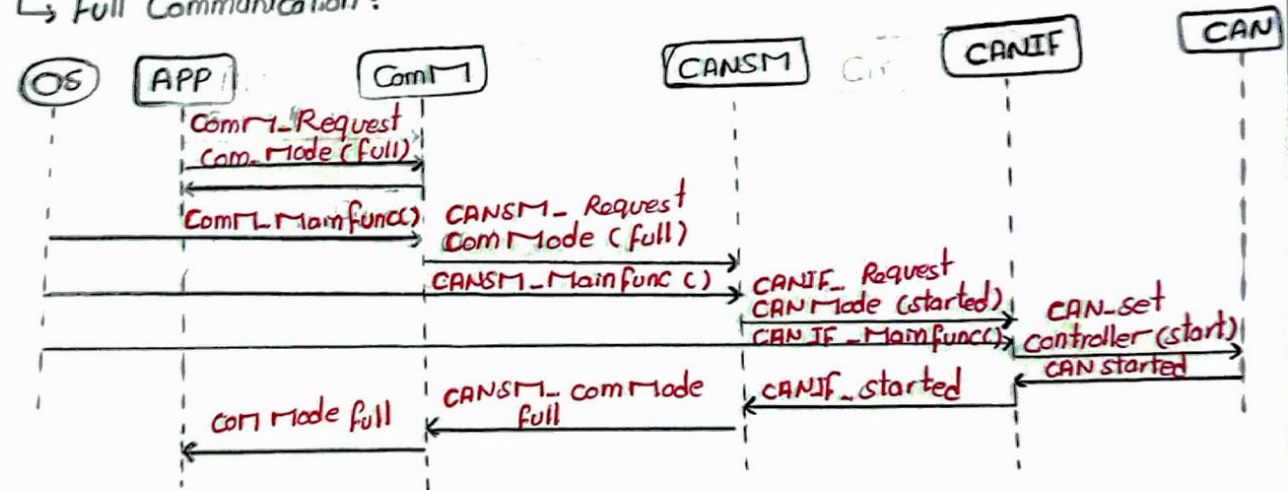 ↳ Full Communication :
OS
APP
ComM
CANSM
CANIF
CAN
ComM_Request
Com_Mode (full)
ComM_Mainfunc()
CANSM_ Request
Com Mode (full)
CANSM_Mainfunc ()
CANIF_ Request
CAN Mode (started)
CANIF_Mainfunc()
CAN_set
controller (start)
CAN started
CANIF_started
CANSM_ com Mode
full
Com Mode full